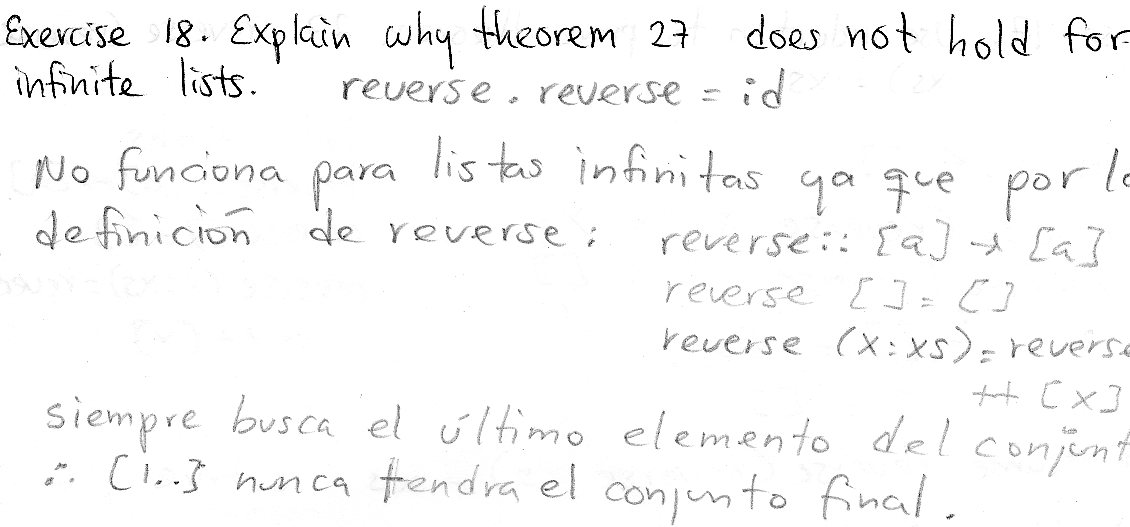 Exercise 18. Explain why theorem 27 does not hold for
infinite lists. reverse . reverse = id
No funciona para listas infinitas ya que por l
definición de reverse : reverse :: [a] → [a]
reverse [ ] = [ ]
reverse (x:xs) = reverse
++ [x]
siempre busca el último elemento del conjunt
∴ [1..] nunca tendra el conjunto final.